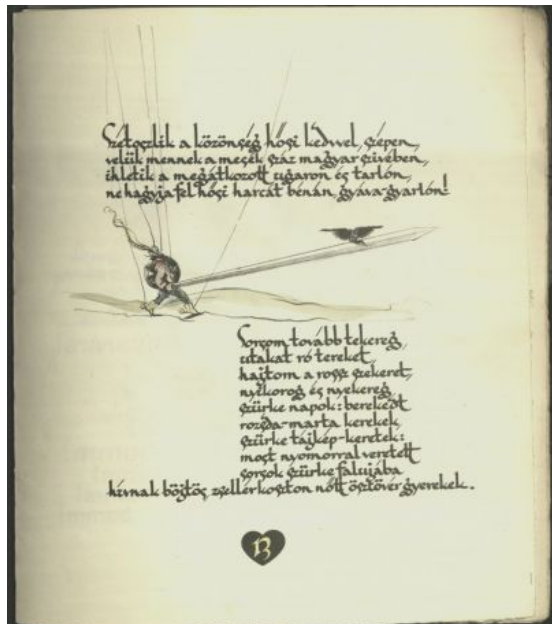 Szétoszlik a közönség hősi kedvvel, szépen,
velük mennek a mesék száz magyar szivében,
ihletik a megátkozott ugaron és tarlón,
ne hagyja fel hősi harcát bénán, gyáva-gyarlón!
Sorsom tovább tekereg,
utakat ró tereket,
hajtom a rossz szekeret,
nyikorog és nyekereg,
szürke napok: berekedt
rozsda-marta kerekek,
szürke tájkép-keretek:
most nyomorral veretett
sorsok szürke falujába
hívnak böjtös zsellérkoszton nőtt ösztövér gyerekek.
13